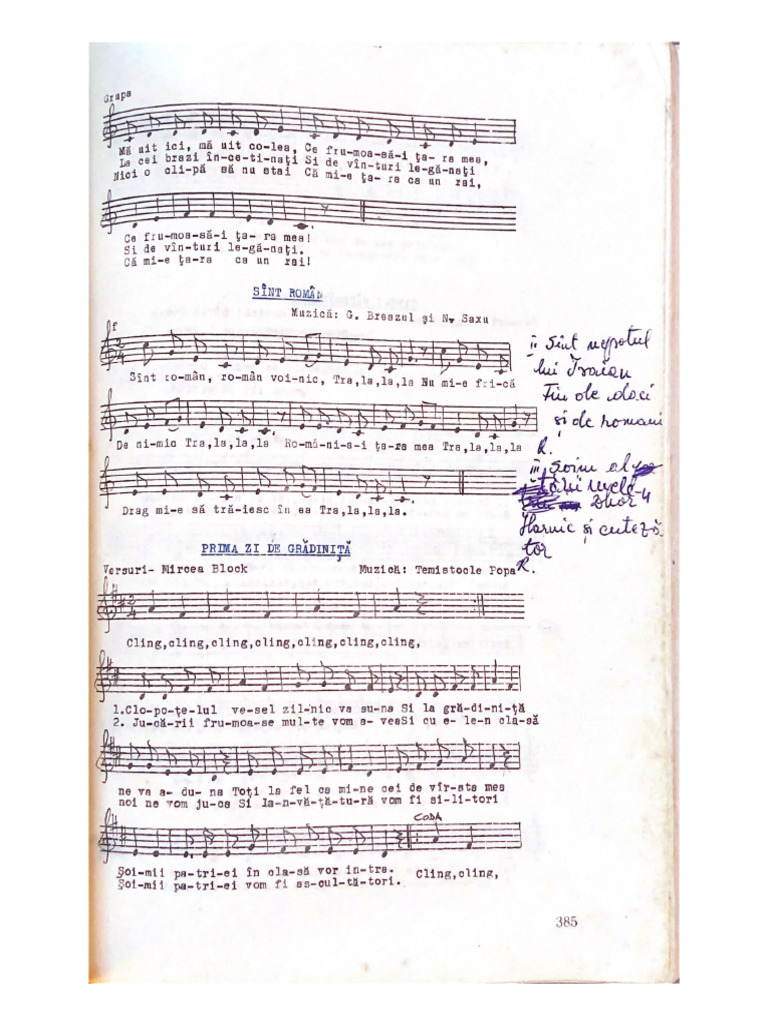 Grupa
Mă uit ici, mă uit co-lea, Ce fru-moa-să-i ța-ra mea,
La cei brazi în-ce-ti-nați Si de vîn-turi le-gă-nați
Nici o cli-pă să nu stai Că mi-e ța-ra ca un rai,
Ce fru-moa-să-i ța-ra mea!
Si de vîn-turi le-gă-nați.
Că mi-e ța-ra ca un rai!
SÎNT ROMÂN
Muzică: G. Breazul și N. Saxu
f
2/4
Sînt ro-mân, ro-mân voi-nic, Tra,la,la,la Nu mi-e fri-că
De ni-mic Tra,la,la,la Ro-mâ-ni-a-i ța-ra mea Tra,la,la,la
Drag mi-e să tră-iesc în ea Tra,la,la,la.
II Sînt nepotul
lui Traian
Fiu de daci
și de romani
R.
III Șoim al
țării
Harnic și cuteză
tor
R.
PRIMA ZI DE GRĂDINIȚĂ
Versuri- Mircea Block Muzică: Temistocle Popa
2/4
Cling,cling,cling,cling,cling,cling,cling,
1.Clo-po-țe-lul ve-sel zil-nic va su-na Si la gră-di-ni-ță
2. Ju-că-rii fru-moa-se mul-te vom a-veaSi cu e-le-n cla-să
ne va a-du-na Toți la fel ca mi-ne cei de vîr-sta mea
noi ne vom ju-ca Si la-n-vă-ță-tu-ră vom fi si-li-tori
CODA
Șoi-mii pa-tri-ei în cla-să vor in-tra. Cling,cling,
Șoi-mii pa-tri-ei vom fi as-cul-tă-tori.
385